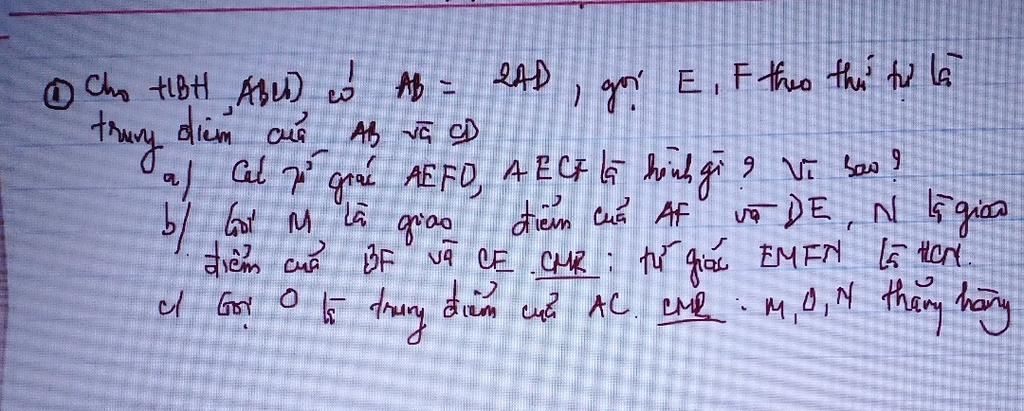 ① Cho HBH ABCD có AB = 2AD, gọi E, F theo thứ tự là
trung điểm của AB và CD
a) Các tứ giác AEFD, AECF là hình gì ? Vì sao ?
b) Gọi M là giao điểm của AF và DE, N là giao
điểm của BF và CE. CMR : tứ giác EMFN là HCN.
c) Gọi O là trung điểm của AC. CMR : M, O, N thẳng hàng